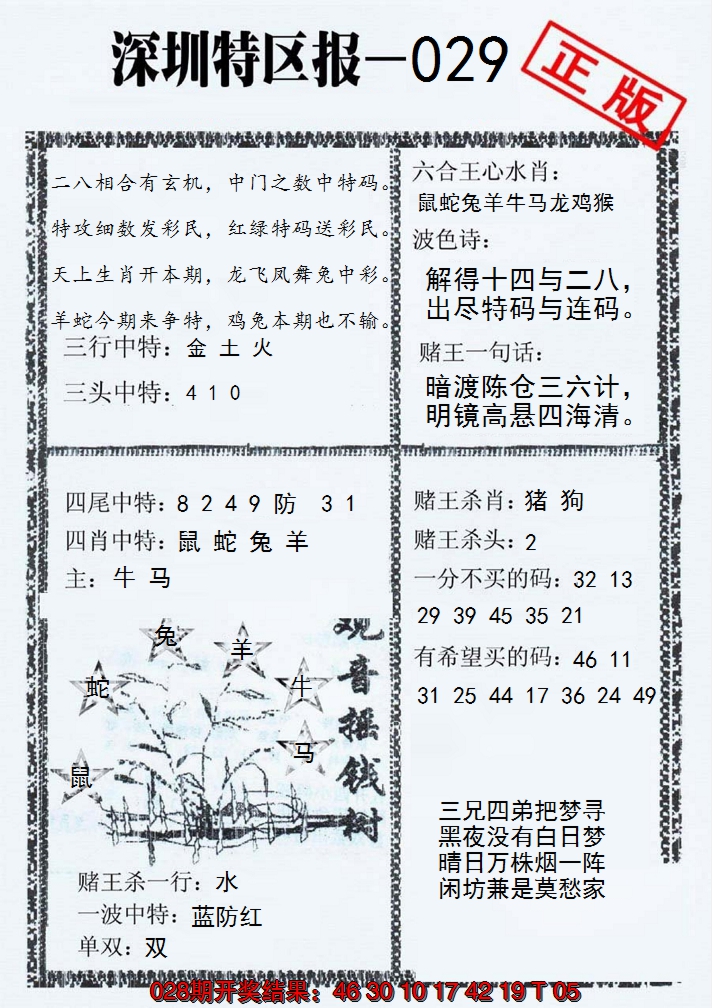 深圳特区报—029
正版
二八相合有玄机，中门之数中特码。
特攻细数发彩民，红绿特码送彩民。
天上生肖开本期，龙飞凤舞兔中彩。
羊蛇今期来争特，鸡兔本期也不输。
三行中特：金 土 火
三头中特：4 1 0
六合王心水肖：
鼠蛇兔羊牛马龙鸡猴
波色诗：
解得十四与二八，
出尽特码与连码。
赌王一句话：
暗渡陈仓三六计，
明镜高悬四海清。
四尾中特：8 2 4 9 防 3 1
四肖中特：鼠 蛇 兔 羊
主：牛 马
兔
羊
蛇
牛
马
鼠
观音摇钱树
赌王杀一行：水
一波中特：蓝防红
单双：双
赌王杀肖：猪 狗
赌王杀头：2
一分不买的码：32 13
29 39 45 35 21
有希望买的码：46 11
31 25 44 17 36 24 49
三兄四弟把梦寻
黑夜没有白日梦
晴日万株烟一阵
闲坊兼是莫愁家
028期开奖结果：46 30 10 17 42 19 T 05